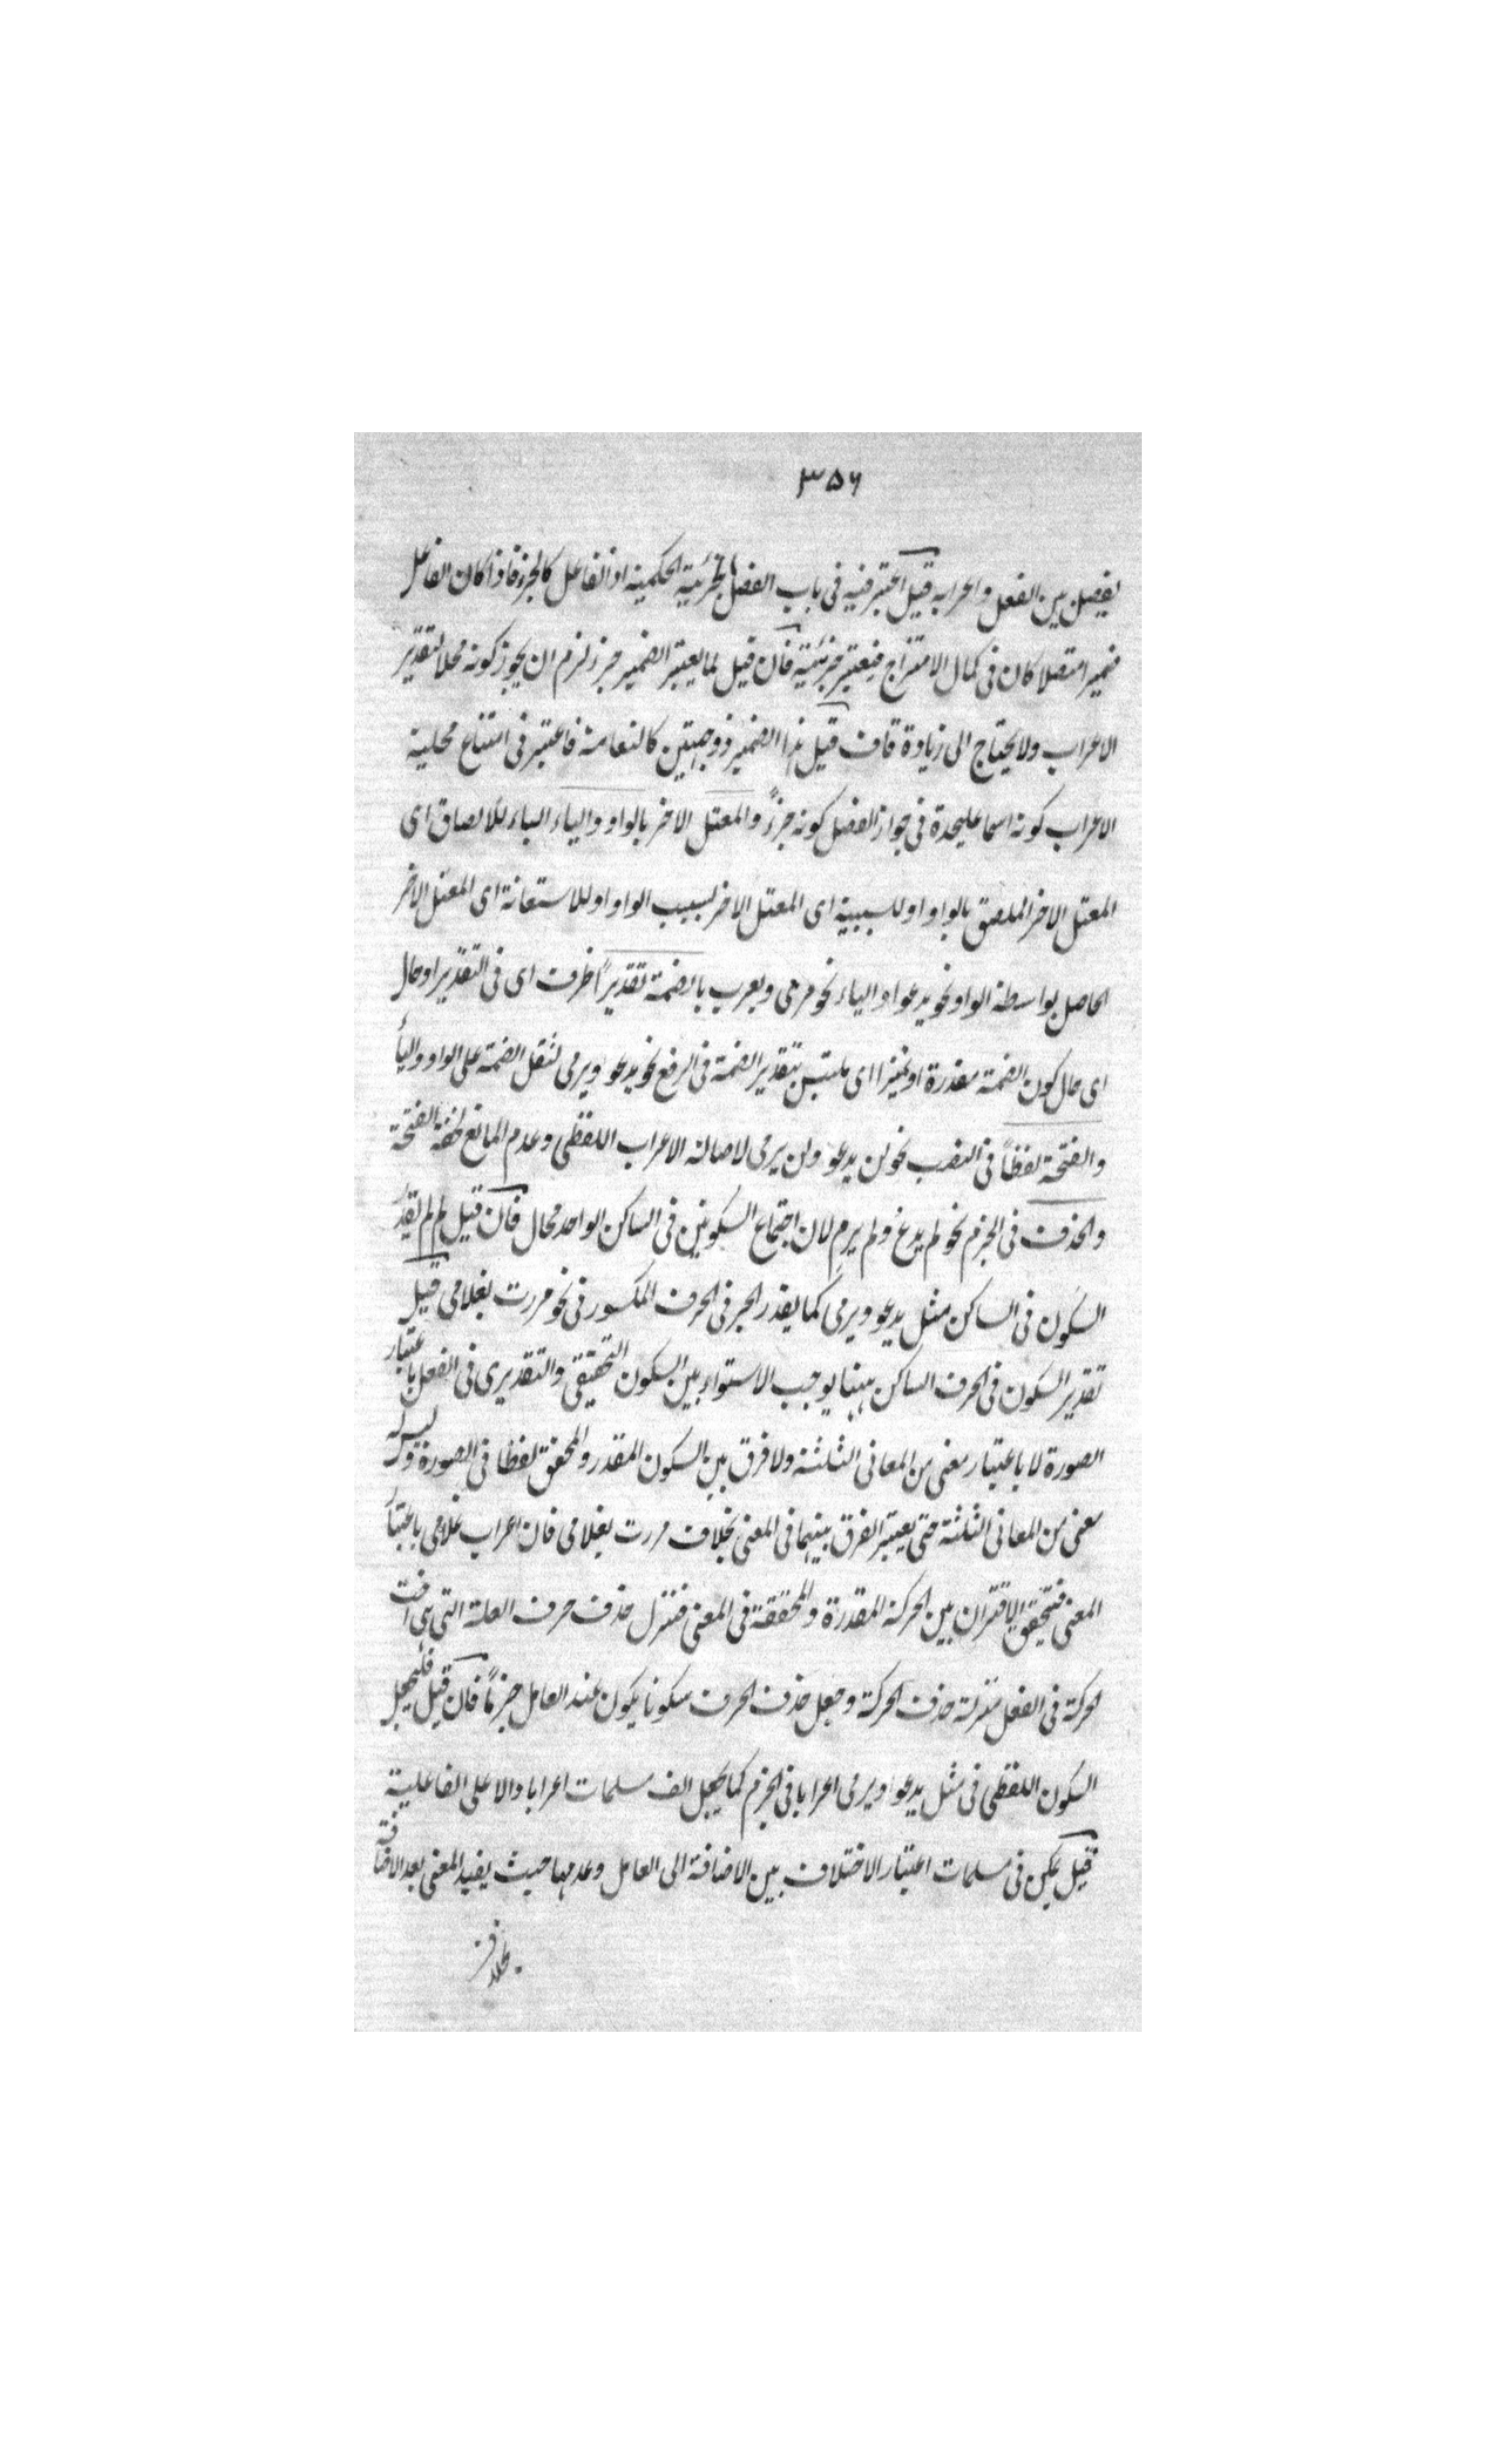 ۳۵۶
يفصل بين الفعل واعرابه قيل اعتبر فيه فى باب الفصل الجزئية الحكمية اذ الفاعل كالجزء فاذا كان الفاعل
ضميرا متصلا كان فى كمال الامتزاج فيعتبر جزئية فان قيل لما يعتبر الضمير جزء لزم ان يجوز كونه محلا لتقدير
الاعراب ولا يحتاج الى زيادة قاف قيل هذا الضمير ذو جهتين كالنعامة فاعتبر فى امتناع محلية
الاعراب كونه اسما عليحدة فى جواز الفصل كونه جزءً والمعتل الاخر بالواو والياء الباء للالصاق اى
المعتل الاخر الملصق بالواو او للسببية اى المعتل الاخر بسبب الواو او للاستعانة اى المعتل الاخر
الحاصل بواسطة الواو نحو يدعو او الياء نحو يرمى ويعرب بالضمة تقديراً ظرف اى فى التقدير او حال
اى حال كون الضمة مقدرة او تميزا اى ملتبس بتقدير الضمة فى الرفع نحو يدعو ويرمى لثقل الضمة على الواو والياء
والفتحة لفظاً فى النصب نحو لن يدعو ولن يرمى لاصالة الاعراب اللفظى وعدم المانع لخفة الفتحة
والحذف فى الجزم نحو لم يدع ولم يرم لان اجتماع السكونين فى الساكن الواحد محال فان قيل لم لم يقدر
السكون فى الساكن مثل يدعو ويرمى كما يقدر الجر فى الحرف المكسور فى نحو مررت بغلامى قيل
تقدير السكون فى الحرف الساكن ههنا يوجب الاستواء بين السكون التحقيقى والتقديرى فى الفعل باعتبار
الصورة لا باعتبار معنى من المعانى الثلثة ولا فرق بين السكون المقدر والمحقق لفظا فى الصورة وليس له
معنى من المعانى الثلثة حتى يعتبر الفرق بينهما فى المعنى بخلاف مررت بغلامى فان اعراب غلامى باعتبار
المعنى فتحقق الافتران بين الحركة المقدرة والمحققة فى المعنى فنزل حذف حرف العلة التى هى اخت
الحركة فى الفعل منزلة حذف الحركة وجعل حذف الحرف سكونا يكون عند العامل جزماً فان قيل فليجعل
السكون اللفظى فى مثل يدعو ويرمى اعرابا فى الجزم كما يجعل الف مسلمات اعرابا دالا على الفاعلية
قيل يمكن فى مسلمات اعتبار الاختلاف بين الاضافة الى العامل وعدمها حيث يفيد المعنى بعد الاضافة
بخلاف